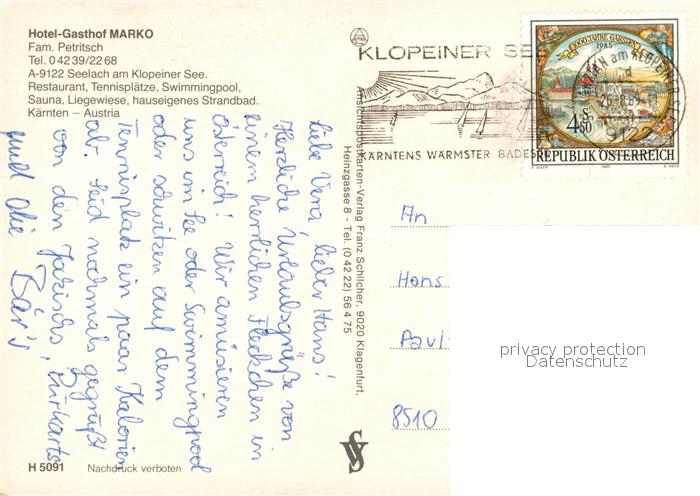 Hotel-Gasthof MARKO
Fam. Petritsch
Tel. 0 42 39/22 68
A-9122 Seelach am Klopeiner See.
Restaurant, Tennisplätze, Swimmingpool,
Sauna, Liegewiese, hauseigenes Strandbad.
Kärnten – Austria
KLOPEINER SEE
KÄRNTENS WÄRMSTER BADES
1000 JAHRE GARSTEN
1985
4 S 50
REPUBLIK ÖSTERREICH
1985
am KLOPEINER SEE
9122
Liebe Vera, lieber Hans!
Herzliche Urlaubsgrüße von
einem herrlichen Fleckchen in
Österreich! Wir amüsieren
uns im See oder Swimmingpool
oder schwitzen auf dem
Tennisplatz ein paar Kalorien
ab. Seid nochmals gegrüßt
von den Jakischs, Burkarts
und die Bär's
Ansichtspostkarten-Verlag Franz Schilcher, 9020 Klagenfurt,
Heinzgasse 8 - Tel. (0 42 22) 56 4 75
An
Hans
8510
privacy protection
Datenschutz
H 5091 Nachdruck verboten